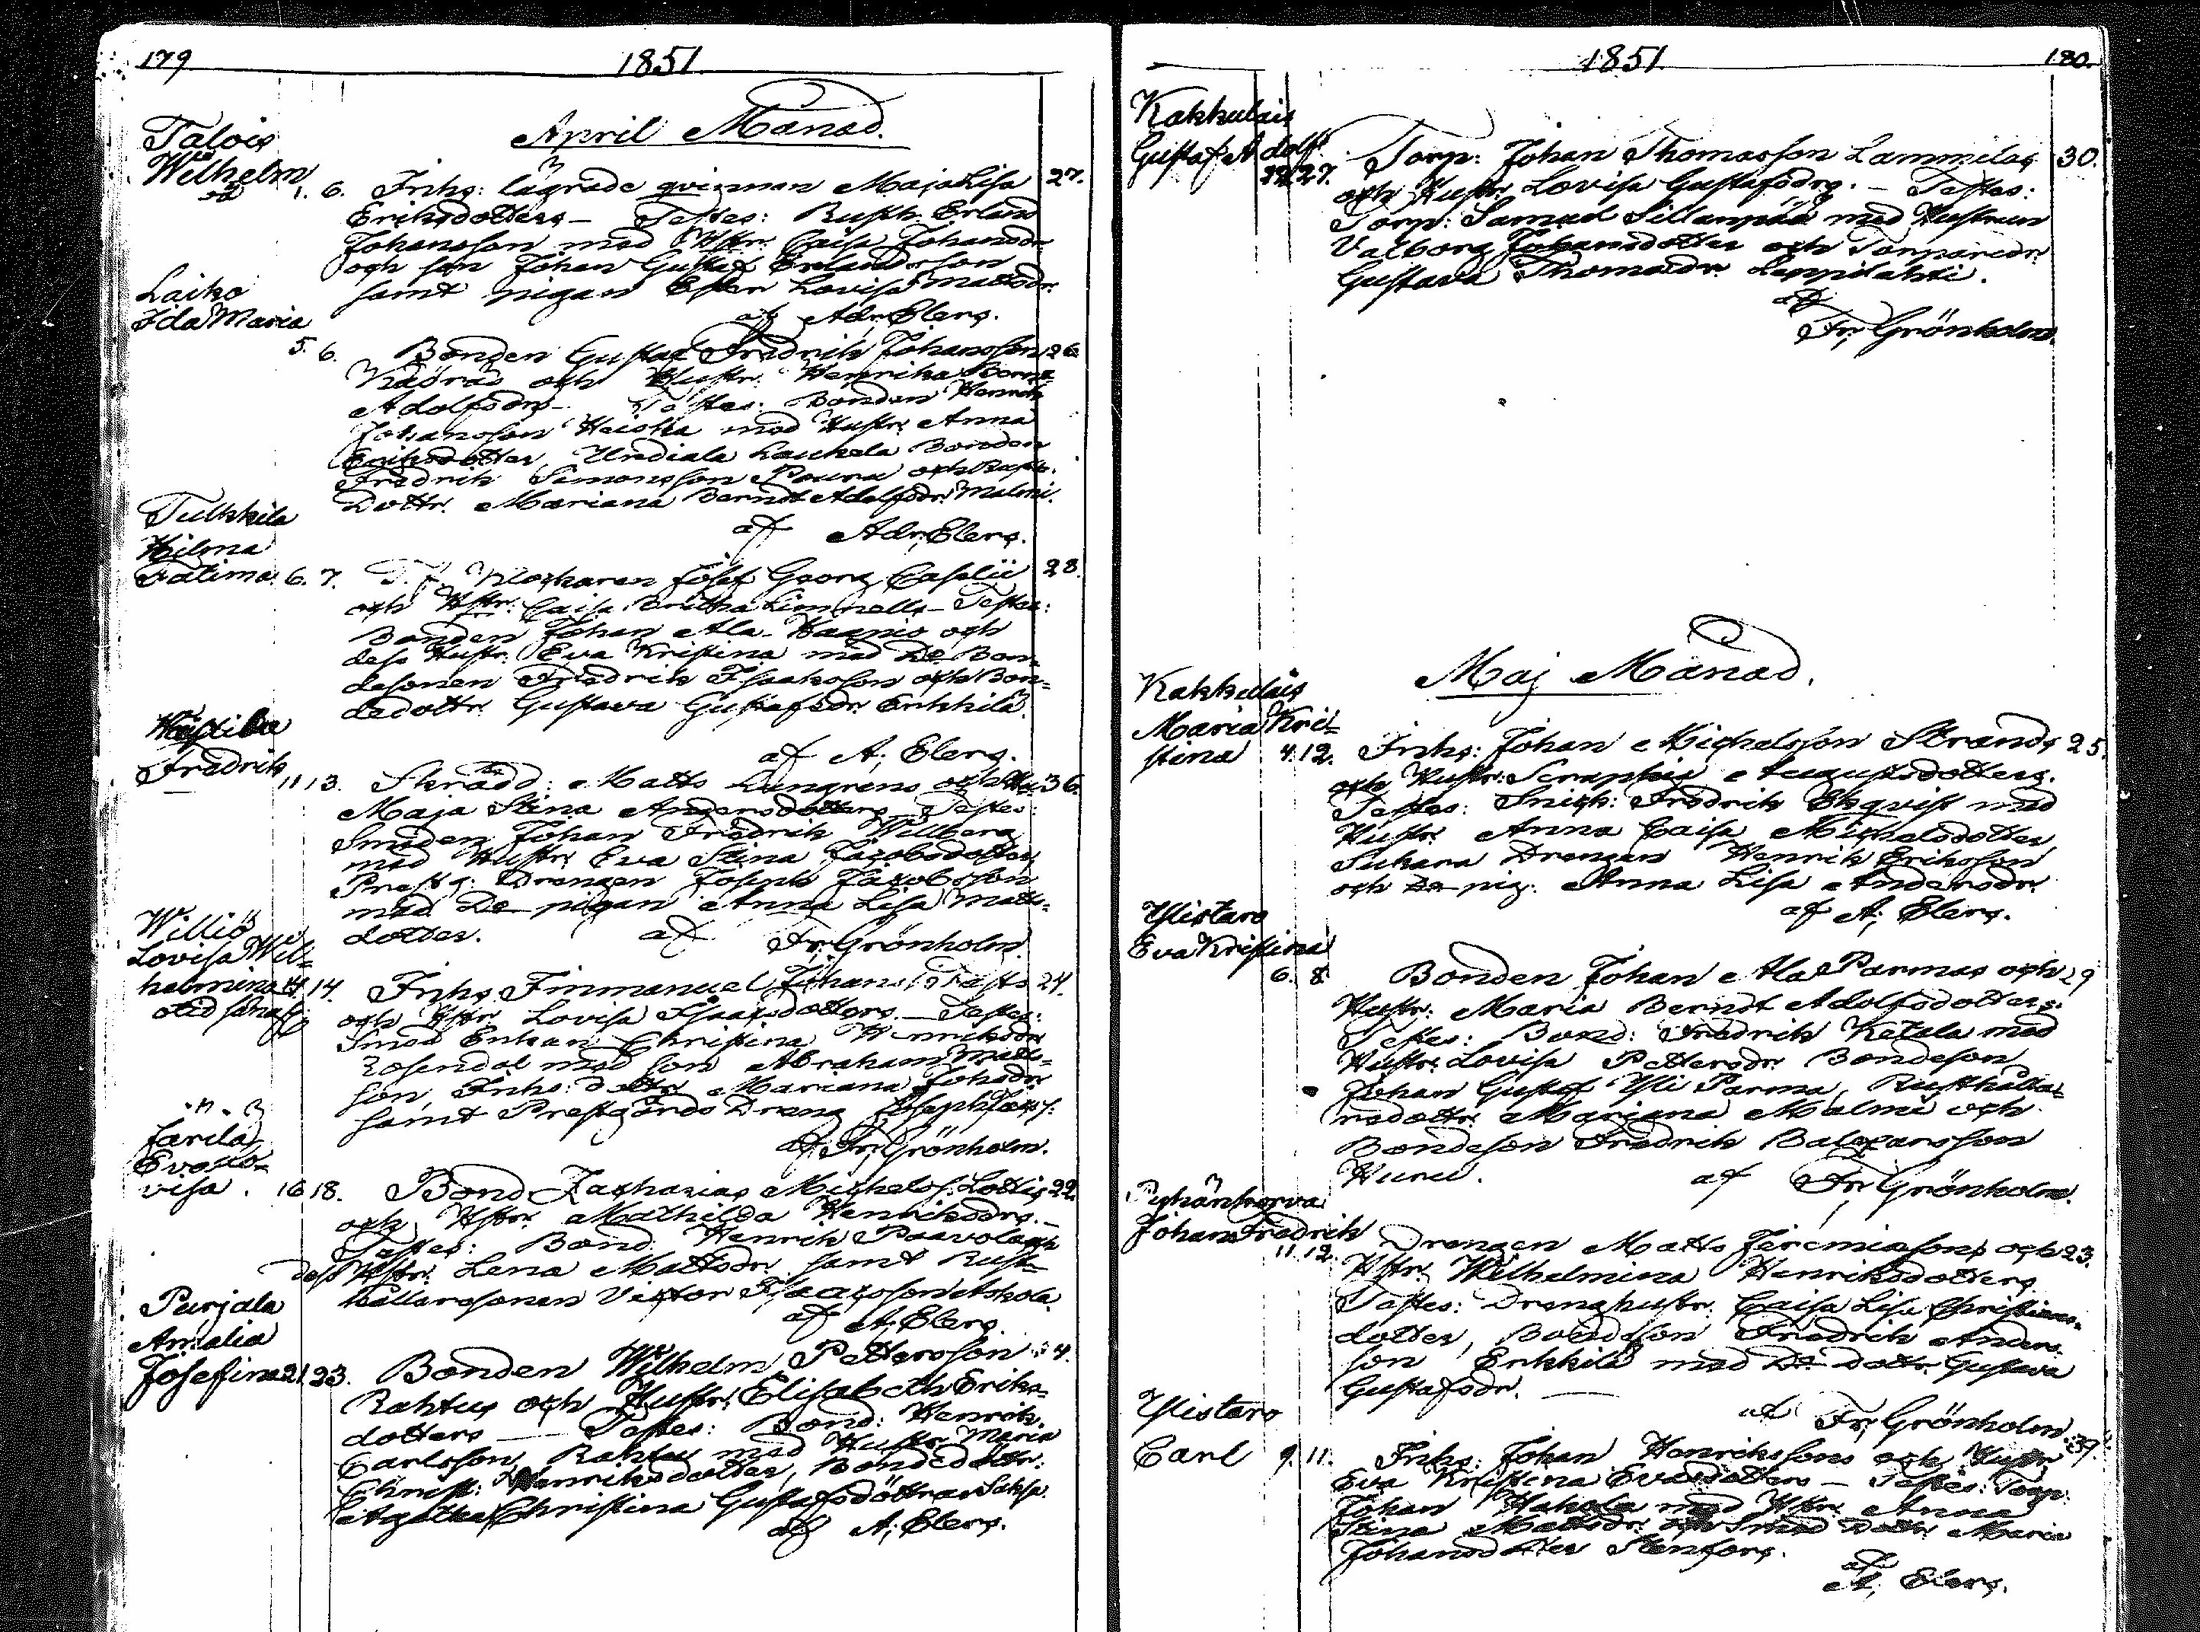 179
1851.
April Månad.
Talois
Wilhelm
1. 6. Inhs: lägrade qvinnan Maja Lisa 27.
Eriksdotters — Testes: Rusth. Erland
Johansson med Hstr. Caisa Johansdr
och son Johan Gustaf Erlandsson
samt pigan Ester Lovisa Mattsdr.
af Adr. Elers.
Laiko
Ida Maria
5. 6. Bonden Gustaf Fredrik Johansson 26
och Hustr. Henrika Bernt
Adolfsdrs — Testes: Bonden Henrik
Johansson Heiska med Hustr. Anna
Eriksdotter, Undiala Laukela Bonden
Fredrik Simonsson Pouru och
Dottr. Mariana Berndt Adolfsdr. Malmi.
af Adr. Elers.
Tulkkila
Hilma
Fatima 6. 7. Klockaren Josef Georg Caselii 28.
och Hstr. Caisa Britha Limnells — Testes:
Bonden Johan Ala-Haanio och
dess Hustr. Eva Kristina med De Bon-
desonen Fredrik Isaaksson och Bon-
dedottr. Gustava Gustafsdr. Erkkilä.
af A. Elers.
Fredrik
11 13. Skrädd: Matts Lungrens och Hu 36.
Maja Stina Andersdotters Testes:
Smeden Johan Fredrik Willberg
med Hustr. Eva Stina Jacobsdotter
Prestg. Drengen Joseph Jacobsson
med De pigan Anna Lisa Matts-
dotter. af Fr. Grönholm.
Williö
Lovisa Wil-
helmina 14. Inhs. Immanuel Johans 24.
och Hstr. Lovisa Isaacsdotters. — Testes:
Smed Enkan Christina Henriksdr
Rosendal med son Abraham Matts-
son, Inhs: dottr. Mariana Johsdr
samt Prestgårds Dreng Joseph
af Fr. Grönholm.
Järilä
Eva Lo-
visa. 16 18. Bond Zacharias Michels. Lottis 22.
och Hstr. Mathilda Henriksdrs. —
Testes: Bond. Henrik Paavola och
dess Hstr. Lena Mattsdr. samt Rust-
hållarsonen Victor Isaacsson Askola.
af A. Elers.
Purjala
Amalia
Josefina 21 23. Bonden Wilhelm Pettersson 34.
Rahtus och Hustr. Elisabeth Eriks-
dotters — Testes: Bond: Henrik.
Carlsson Rahtu med Hustr. Maria
Christ: Henriksdotter, Bondedottr.
Agatha Christina Gustafsdottrar Saksp.
af A. Elers.
1851.
180.
Kakkulais
Gustaf Adolf
22 27. Torp: Johan Thomasson Lammelas 30.
och Hustr. Lovisa Gustafsdrs. — Testes:
Torp: Samuel Sillanpää med Hustrun
Valborg Johansdotter och Torparedr.
Gustava Thomasdr. Leppilahti.
af
Fr. Grönholm.
Maj Månad.
Kakkulais
Maria Kri-
stina 4. 12. Inhs: Johan Michelsson Strands 25.
och Hustr. Seraphia Augustsdotters.
Testes: Snick: Fredrik Ekqvist med
Hustr. Anna Caisa Michelsdotter
Sukara Drengen Henrik Eriksson
och De pig. Anna Lisa Andersdr.
af A. Elers.
Ylistaro
Eva Kristina
6. 8. Bonden Johan Ala Parmas och 29
Hustr: Maria Berndt Adolfsdotters:
Testes: Bond: Fredrik Ketala med
Hustr. Lovisa Pettersdr. Bondeson
Johan Gustaf Yli Parma, Rusthålla-
redottr. Mariana Malmi och
Bondeson Fredrik Balzarsson
Huru. af Fr. Grönholm.
Pyhänkorva
Johan Fredrik
11. 12. Drengen Matts Jeremiassons och 23.
Hstr. Wilhelmina Henriksdotters
Testes: Drenghustr. Caisa Lisa Christians-
dotter, Bondeson Fredrik Anders-
son Erkkilä med De dottr. Gustava
Gustafsdr. —
af Fr. Grönholm.
Ylistaro
Carl 9. 11. Inhs: Johan Henrikssons och Hustr 39.
Eva Kristina Evasdotters — Testes: Torp:
Johan Hakola med Hstr. Anna
Stina Mattsdr. och Smed dottr. Maria
Johansdotter Stenfors.
af
A. Elers.